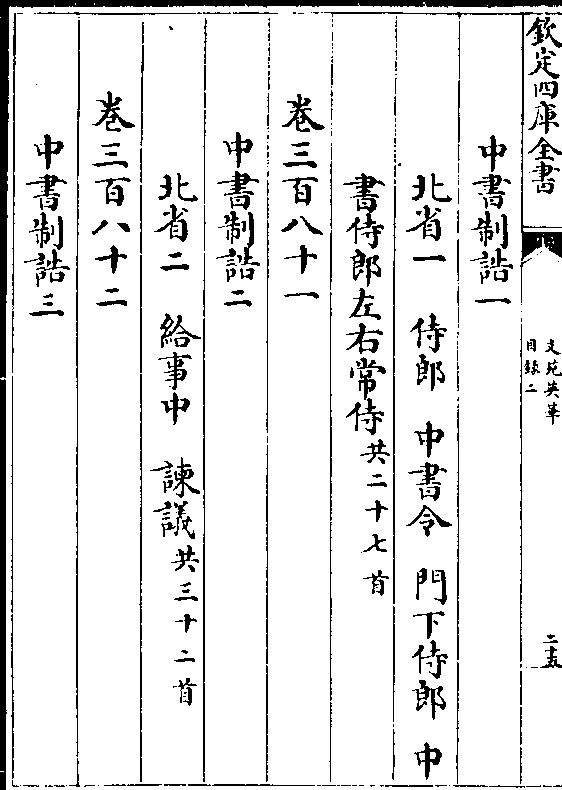 欽定四庫全書
文苑英華
目錄二
二十五
中書制誥一
北省一 侍郎 中書令 門下侍郎 中
書侍郎左右常侍共二十七首
卷三百八十一
中書制誥二
北省二 給事中 諫議共三十二首
卷三百八十二
中書制誥三